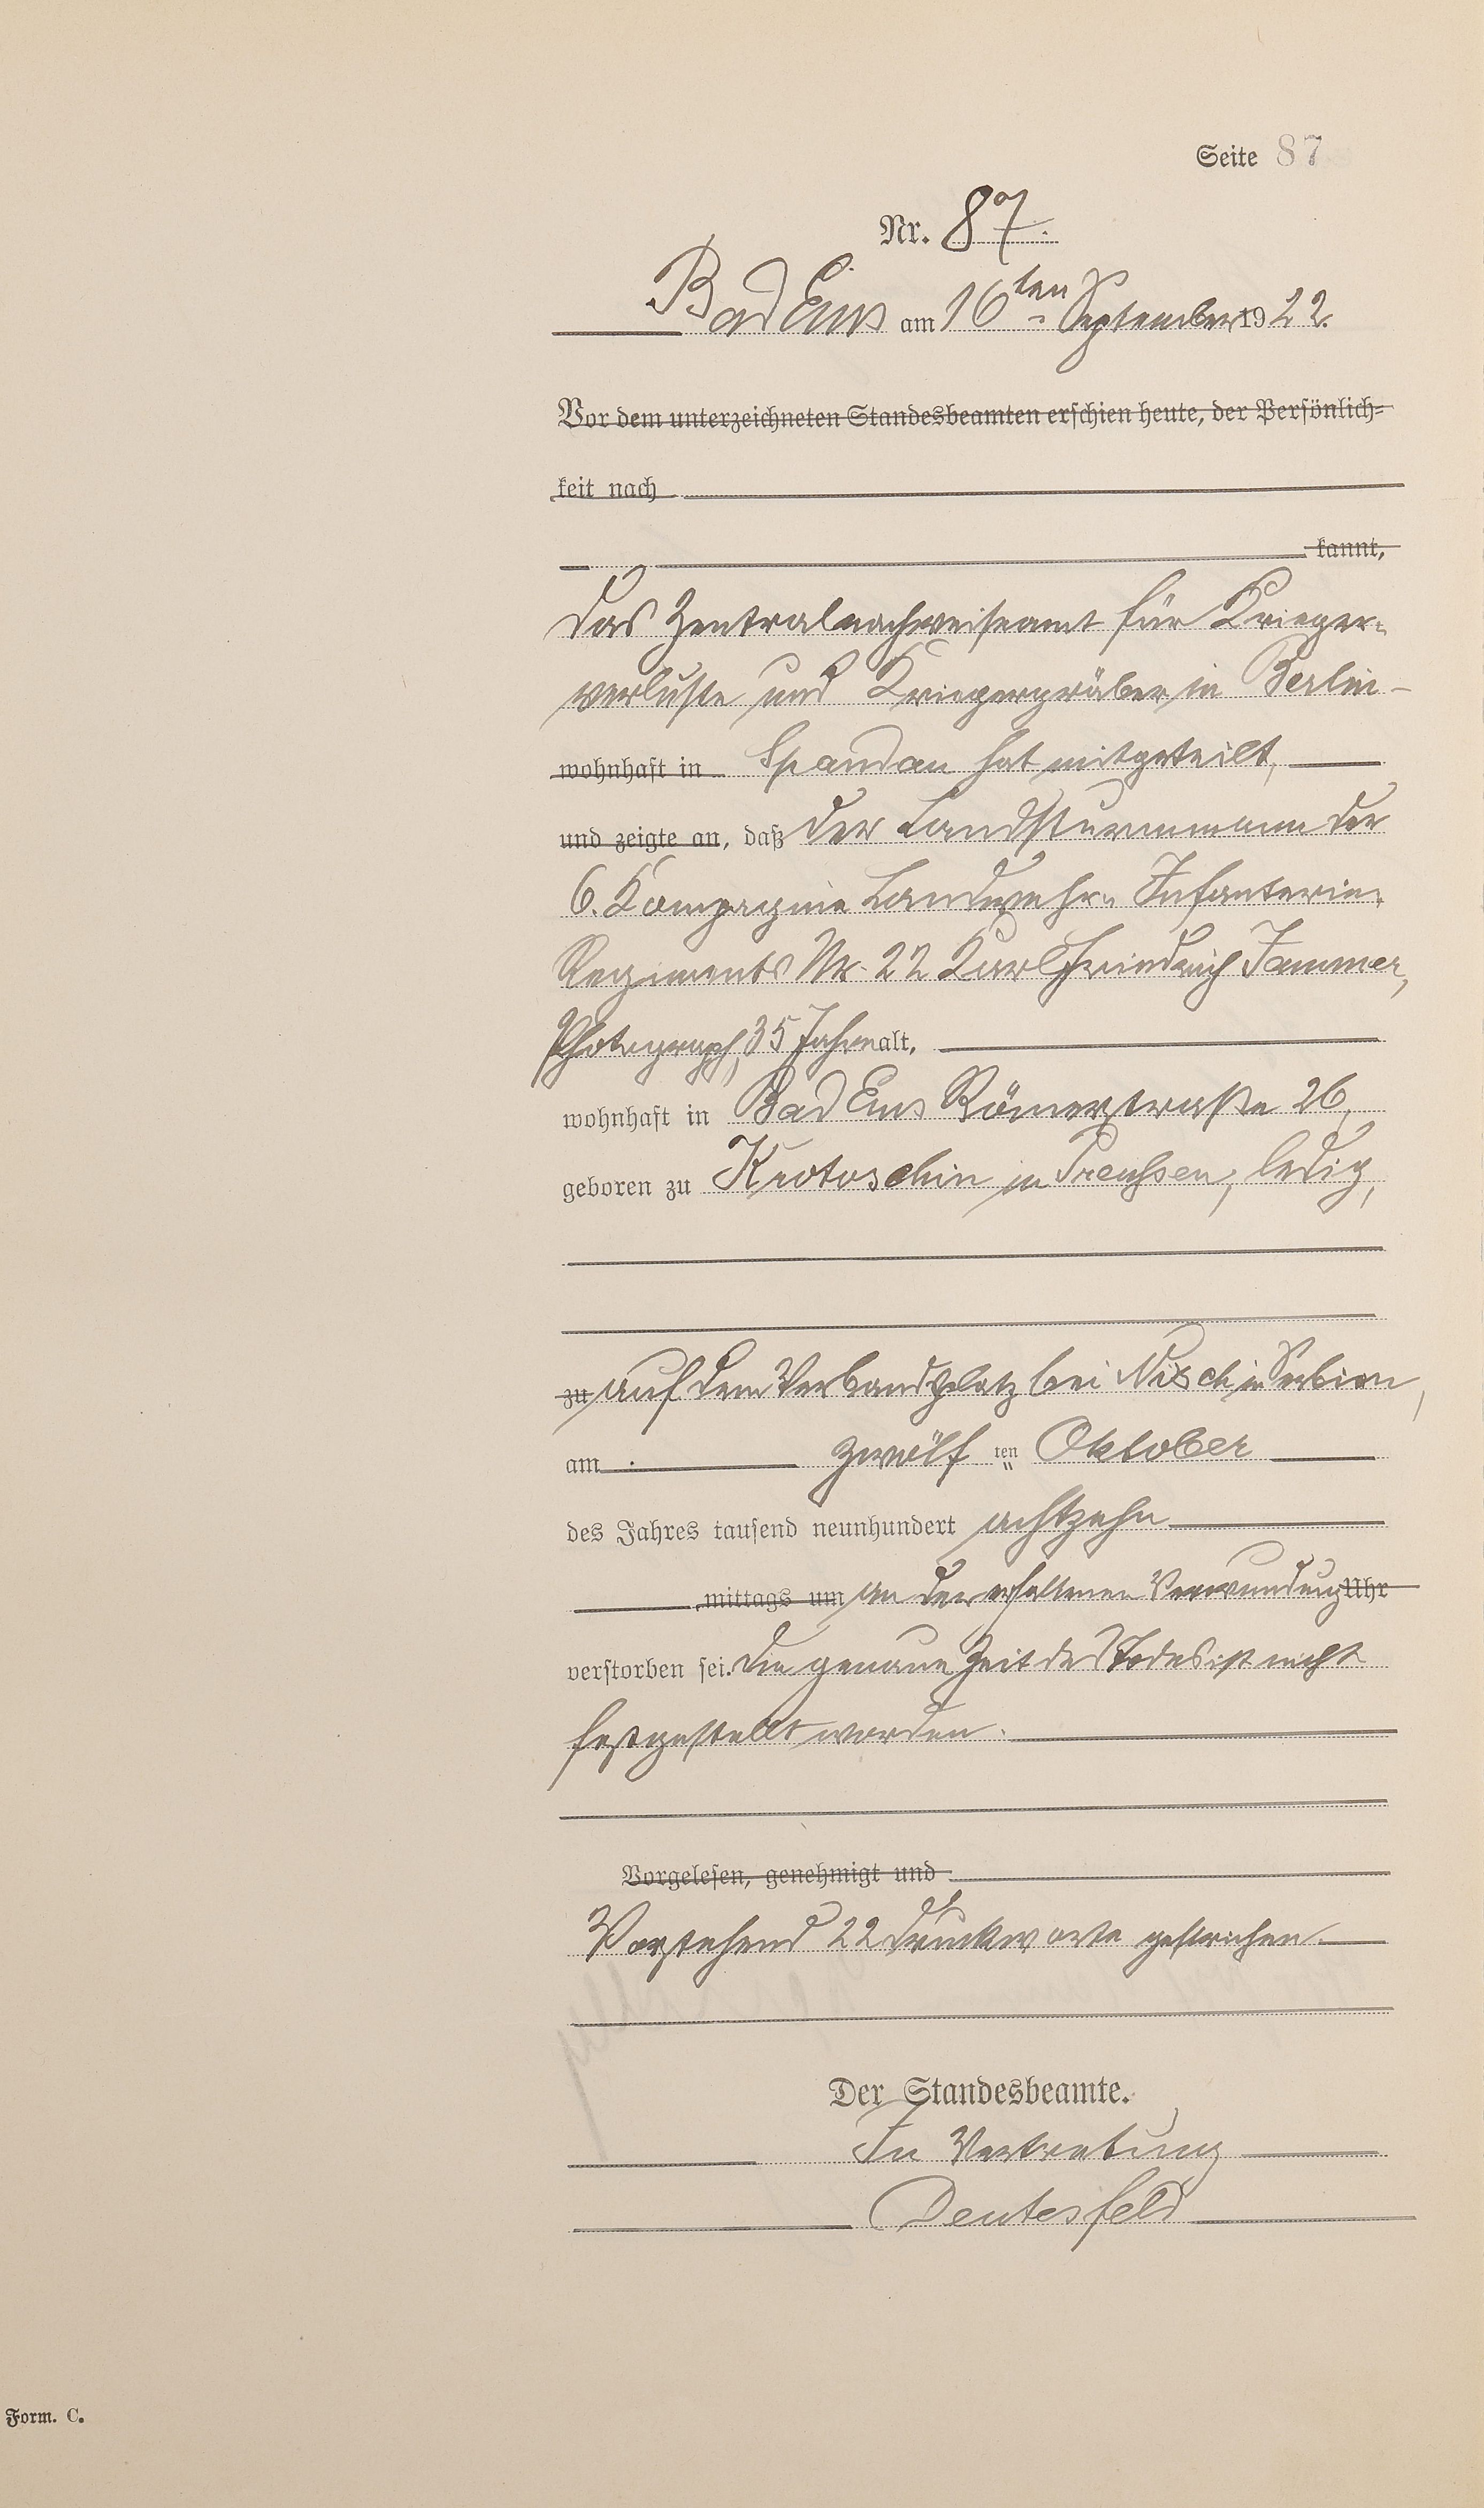 Seite 87
Nr. 87.
Bad Ems am 16ten September 1922.
Vor dem unterzeichneten Standesbeamten erschien heute, der Persönlich-
keit nach
kannt,
das Zentralnachweiseamt für Krieger-
verluste und Kriegergräber in Berlin-
wohnhaft in Spandau hat mitgeteilt,
und zeigte an, daß der Landsturmmann der
6. Kompagnie Landwehr-Infanterie-
Regiments Nr. 22 Karl Friedrich Jammer,
Photograph, 35 Jahre alt,
wohnhaft in Bad Ems Römerstraße 26,
geboren zu Krotoschin in Preußen, ledig,
zu auf dem Verbandplatz bei Nisch in Serbien,
am zwölf ten Oktober
des Jahres tausend neunhundert achtzehn
mittags um an der erhaltenen Verwundung Uhr
verstorben sei. Die genaue Zeit des Todes ist nicht
festgestellt worden.
Vorgelesen, genehmigt und
Vorstehend 22 Druckworte gestrichen.
Der Standesbeamte.
In Vertretung
Deutesfeld
Form. C.